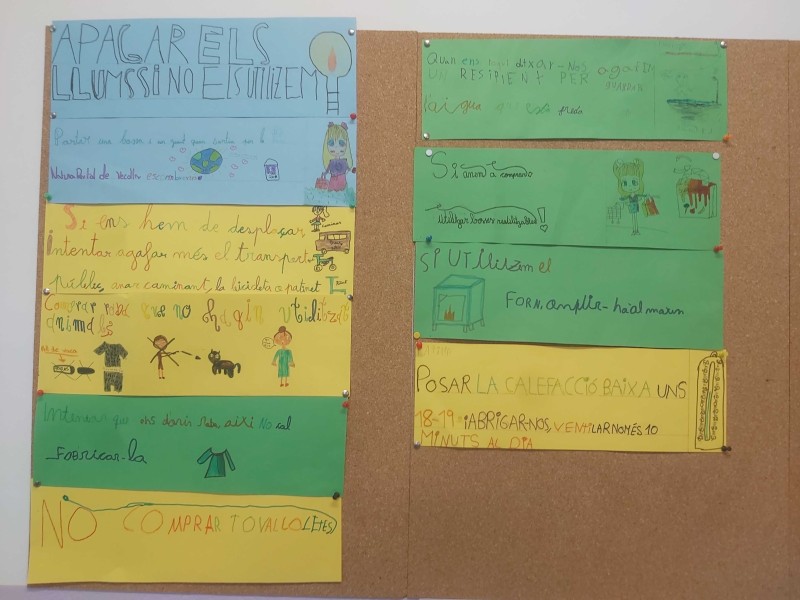 APAGAR ELS
LLUMS SI NO ELS UTILITZEM
Portar una bossa i un guant quan sortim
Natura Parlal de Vacolta
Si ens hem de desplaçar
intentar agafar més el transport
públic, anar caminant, la bicicleta o patinet
Comprar roba que no hagin utilitzat
animals
Intentar que ens donin roba, així NO cal
FOBRICAR-la
NO COMPRAR TOVALLOLETES
Quan ens dutxar-Nos agafar
UN RESIPIENT PER GUARDAR
l'aigua que freda
Si anem a comprar
utilitzar bosses reutilitzables!
SI UTILITZEM el
FORN, omplir-ho al màxim
POSAR LA CALEFACCIÓ BAIXA UNS
18-19 i ABRIGAR-NOS, VENTILAR NOMÉS 10
MINUTS AL DIA